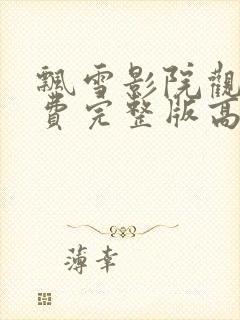 飄雪影院觀
費完整版高
薄幸